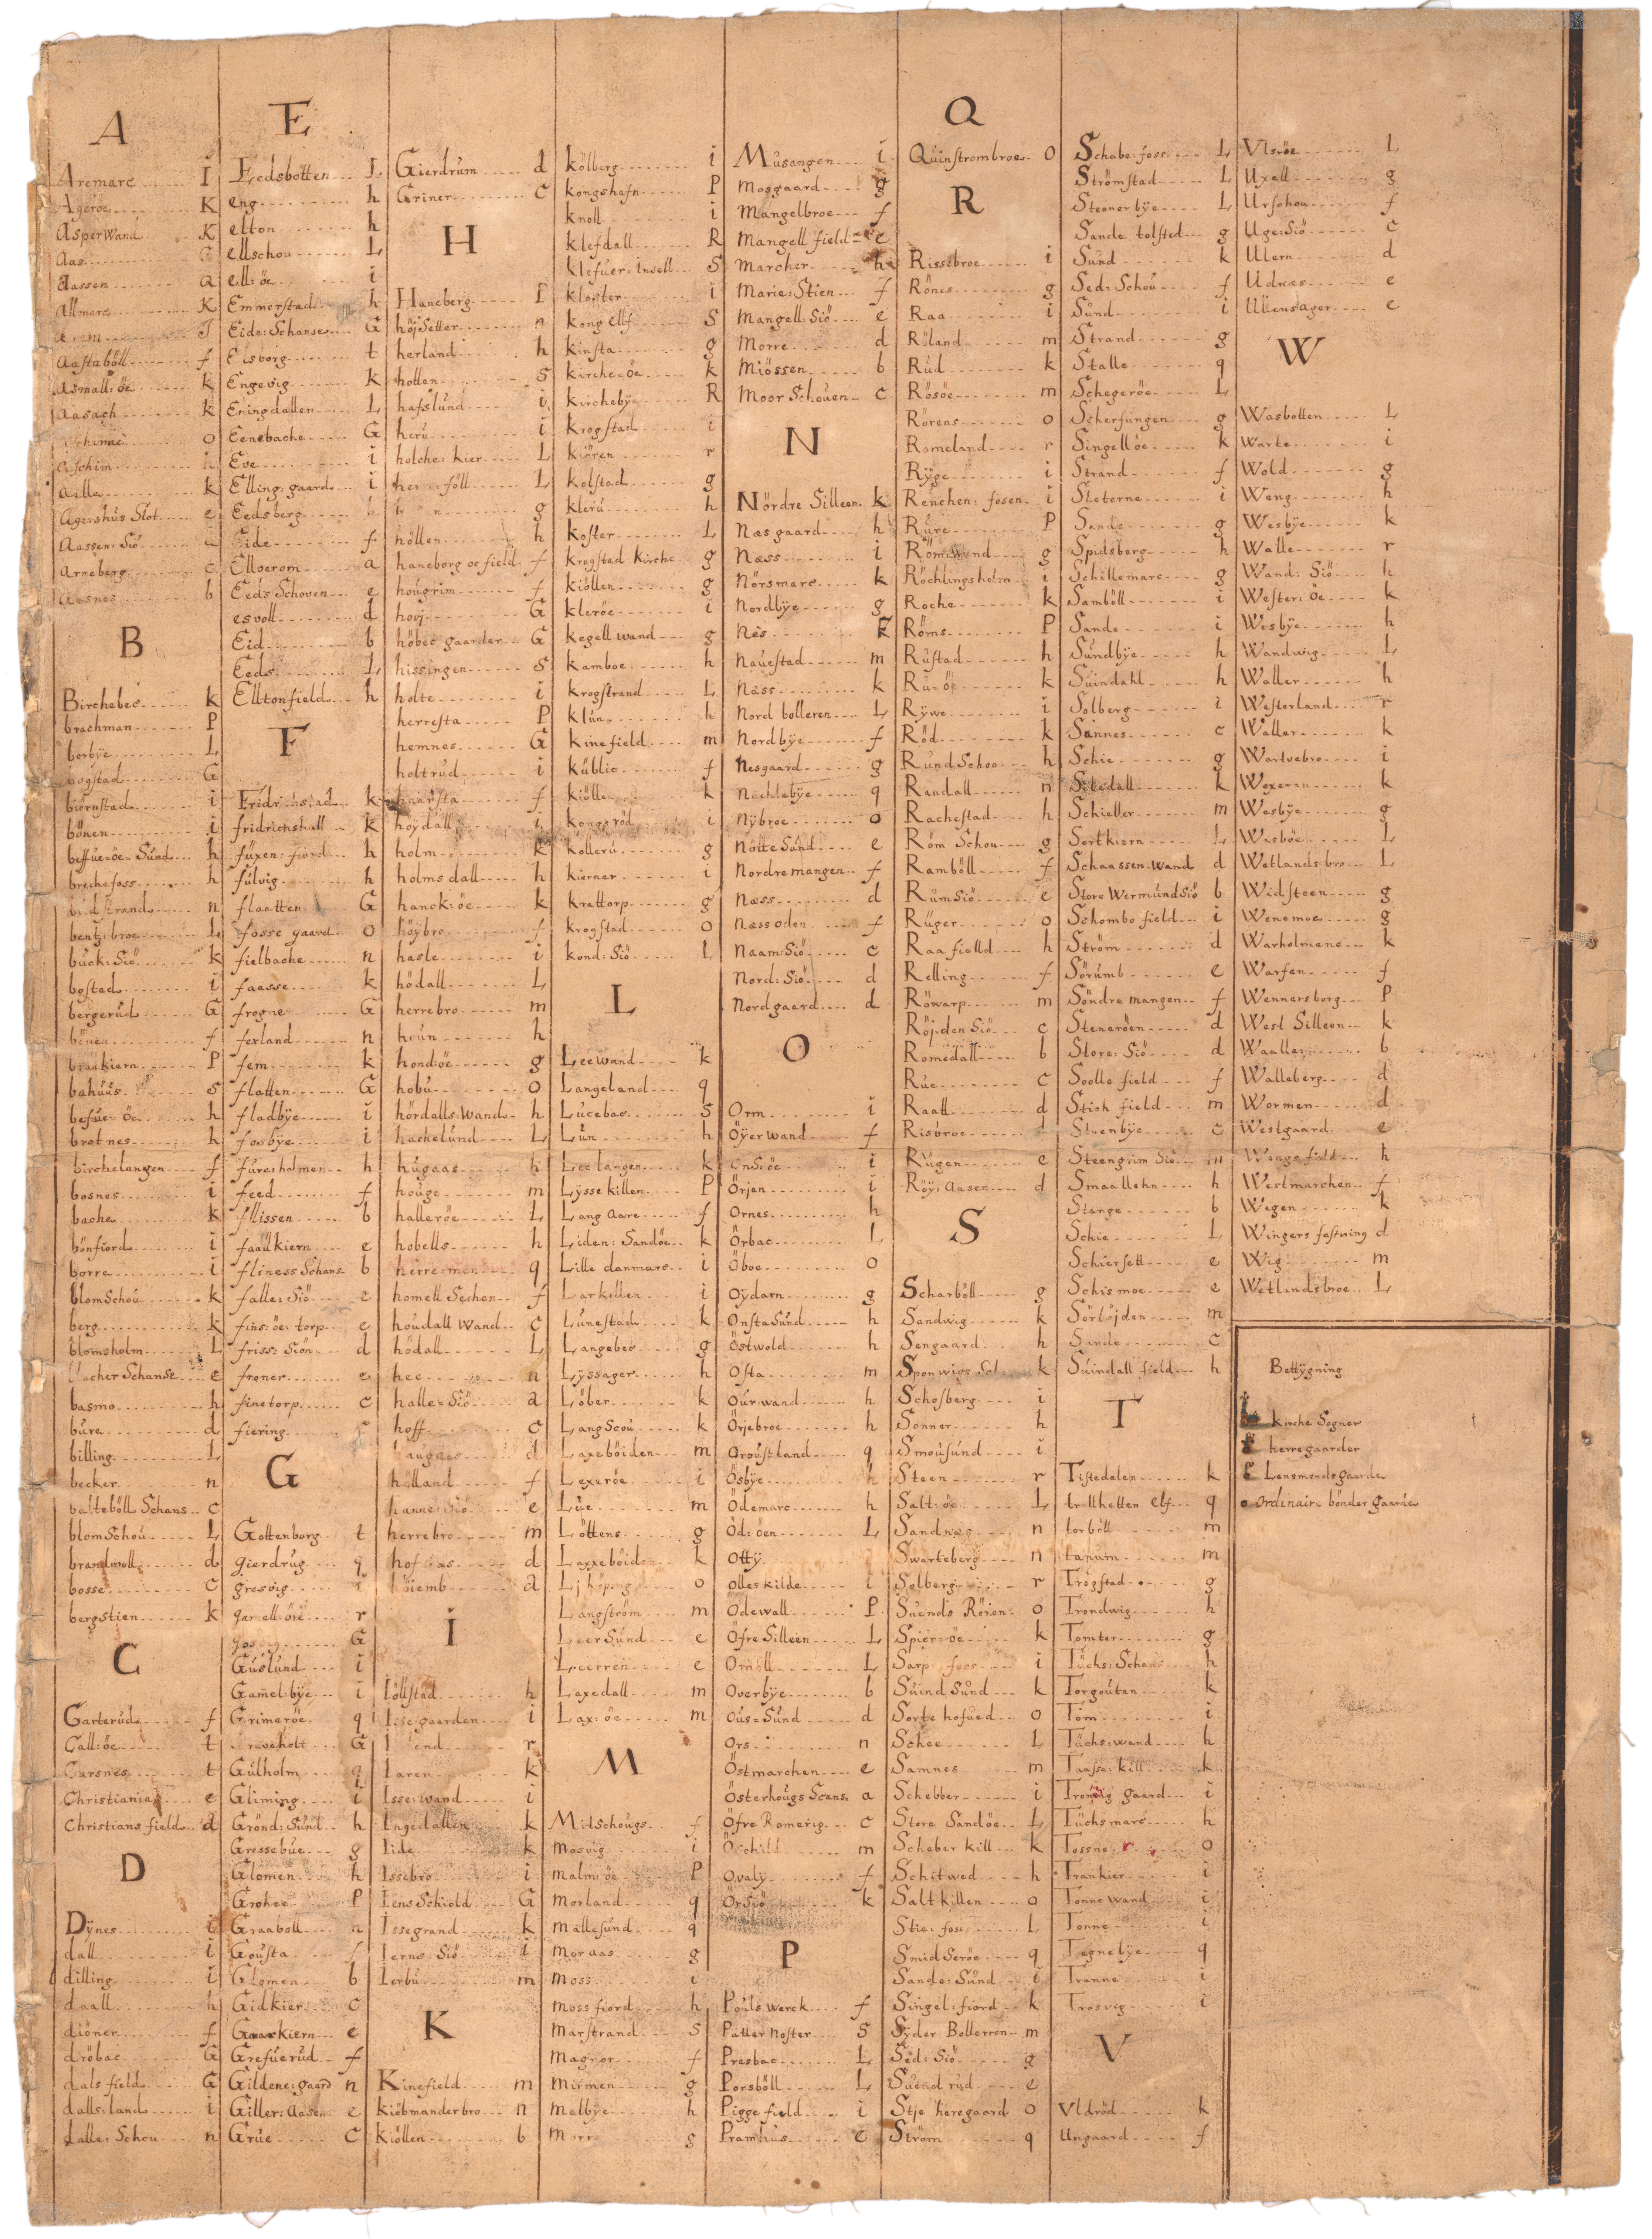 A
Aremarc I
Ageröe K
Asper Wand K
Aas
Aassen a
Allmarc K
Aastaböll f
Asmall: öe k
Aasach k
aschim
aella k
Agershus Slot e
Aassen: Siö
Arneberg c
Aasnes b
B
Birchabec k
brachman P
borbÿe L
bogstad G
biörnstad i
bönen i
beffue-öe-Sund h
brechefoss h
bentz: broe
buck: Siö k
bostad i
bergerud G
bönen f
braekiern P
bahuus s
befue-öe h
brotnes h
birchelangen f
bosnes i
bache k
bönfiord i
borre i
blomSchou k
berg k
blomsholm L
blacher Schanse e
basmo h
bure d
billing L
becker n
balteböll Schans c
blomSchou L
brandwoll d
bosse c
bergstien k
C
Carterud f
Call: öe t
Carsnes t
Christiania e
Christians field d
D
Dÿnes i
dall i
dilling i
daall h
diöner f
dröbac G
dals field G
dalls: land i
dalle: Schou n
E
Eedsbotten L
eng h
elton h
ellschou L
ell: öe i
Emmerstad h
Eide: Schanse G
Elsborg t
Engevig k
Eningdallen L
Eenebache G
Eve i
Elling: gaard i
Eedsberg
Eide f
Elloerom a
Eeds Schoven e
esvoll d
Eid b
Eeds L
Elltonfield h
F
Fridrichstad k
fridrichshall k
füxen: fiord h
fulvig h
flaatten G
fosse gaard o
fielbache n
faasse k
frogne G
ferland n
fem k
flatten G
fladbÿe i
fosbÿe i
fure: holmen h
feed f
fllissen b
faaulkiern e
fliness Schans b
falle: Siö e
fins: öe: torp e
friss: Siön d
froner e
finetorp c
fiering c
G
Gottenborg t
gierdrug q
gresvig i
gamell-öre r
Guslund i
Gamel: bÿe i
Grimeröe q
Gulholm q
Gliming i
Grönd: Sund h
Gressebue g
Glomen h
Grohee P
Graaboll n
Gousta f
Glomen b
Gidkier c
Graarkiern e
Grefuerud f
Gildene: gaard n
Giller: Aasen e
Grue c
Gierdrum d
Griner c
H
Haneberg I
höjSetter n
herland h
hotten s
hafslund i
heru i
holche: kier L
höllen h
haneborg oe field f
hougrim f
hovj G
höbec gaarder G
hissingen s
holte i
herresta P
hemnes G
holtrud i
knarsta f
höÿdall i
holm k
holms dall h
hanck: öe k
höÿbro f
hasle i
hödall L
herrebro m
houn h
hond: öe g
hobu o
hördalls: Wand h
hachelund L
hugaas h
houge m
halleröe L
hobells h
herre: men q
homell Sechen f
houdall Wand c
hödall L
hee n
halle-Siö a
hoff c
haugaas d
hölland f
hanne: Siö e
herrebro m
hof aas d
höiemb a
I
Iöllstad h
Isse: gaarden i
Iaren k
Isse: wand i
Ingedallen k
Iide k
Issebro i
Iens Schiold G
Issegrand k
Ierns: Siö i
Ierbu m
K
Kinefield m
kiöbmanderbro n
kiöllen b
kölberg i
kongshafn P
knoll i
klefdall R
klefuer: Insell S
kloster i
kong ellf S
kinsta g
kirche-öe k
kirchebÿe R
krogstad i
kiören r
kolstad g
kleru h
koster L
krogstad kirche g
kiöllen g
kleröe i
kegell wand g
kamboe h
krogstrand L
klun h
kinefield m
kublie f
kiölle k
kongsröd i
kolleru g
kierner i
krattorp g
krogstad o
kond: Siö L
L
Leewand k
Langeland q
Lucebac S
Lun h
Leelangen k
Lÿsse killen P
Lang Aare f
Liden: Sandöe k
Lille danmarc i
Larkillen i
Lunestad k
Langebec g
Lÿssager h
Löber k
LangScou k
Laxeböiden m
Lexeröe i
Lue m
Löttens g
Laxxeböide k
Ljhöpeng o
Langström m
LeerSund e
Leerren e
Laxedall m
Lax: öe m
M
MitSchougs f
mosvig i
malm: öe P
morland q
mallesund q
moraas g
moss i
moss fiord h
marstrand s
magnor f
mirmen g
malbÿe h
morr g
Musangen i
Mosgaard g
Mangelbroe f
Mangell field e
Marcher h
Marie: Stien f
Mangell: Siö e
Morre d
Miössen b
Moor Schouen c
N
Nördre Silleen k
Næsgaard h
Næss i
Nörsmarc k
Nordbÿe g
Nes k
Nauestad m
Næss k
Nord bolleren L
Nordbÿe f
Nesgaard g
Nechlebÿe q
Nÿbroe o
Nötte Sund e
Nordre mangen f
Næss d
Næssoden f
Naam: Siö c
Nord: Siö d
Nordgaard d
O
Orm i
Öÿer wand f
Örjen i
Ornes h
Örbac L
Öboe o
Oÿdarn g
OnstaSund h
Östwold h
Osta m
Our: wand h
Örjebroe h
Oroustland q
Ösbÿe h
Ödemarc h
Öd: öen L
Ottÿ
Olleskilde i
Odewall P
Öfre Silleen L
Omöll L
Overbÿe b
Ous-Sund d
Ors n
Östmarchen e
Österhougs Scans a
Öfre Romerig c
Öschild m
Ovalÿ f
Örsiö k
P
Pouls werck f
Patter Noster S
Presbac L
Porsböll L
Pigge field i
Pramhus e
Q
Quinstrombroe o
R
Rissebroe i
Rönes g
Raa i
Röland m
Rud k
Rösöe m
Rörens o
Romeland r
Rÿge i
Renchen: fosen i
Rure P
Römswand g
Röchlingsholm i
Roche k
Röms P
Rustad h
Ru-öe k
Rÿwe i
Röd k
Rund Schoo h
Randall n
Rachestad h
Röm Schou g
Ramböll f
RumSiö e
Ruger o
Raa fielld h
Relling f
Röwarp m
Röjden Siö c
Romedall b
Rue c
Raatt d
Risbroe d
Rugen e
Röÿ: Aasen d
S
Scharböll g
Sandwig k
Sengaard h
Sponwigs Sol k
Schosberg i
Sonner h
Smousund i
Steen r
Salt: öe L
Sandnæs n
Swarteberg n
Solberg r
Suends Rören o
Spier: öe k
Sarp: foss i
Suind Sund k
Sorte hofued o
Schee L
Samnes m
Schebber i
Store Sandöe L
Scheber kill k
Schitwed h
Salt killen o
Stie: foss L
Smid Seröe q
Sande: Sund i
Singel: fiord k
Sÿder Bollerren m
Sed: Siö g
Suend rud e
Stje heregaard o
Ström q
Schabe: foss L
Strömstad L
Steenerbÿe L
Sande tolsted g
Sund k
Sed: Schou f
Sund i
Strand g
Stalle q
Schegeröe L
Scherfungen g
Singellöe k
Strand f
Sleterne i
Sande g
Spidsberg h
Schillemarc g
Samböll i
Sande i
Sundbÿe h
Suindahl h
Solberg i
Sannes c
Schie g
Stbedall k
Schieller m
Sortkiern L
Schaassen: wand d
Store WermundSiö b
Schombo field i
Ström d
Sörumb e
Söndre mangen f
Steneröen d
Store: Siö d
Soolle field f
Stich field m
Stuenbÿe c
Steengrim Siö n
Smaallehn h
Stange b
Schie L
Schiersett e
Schis moe e
Sörböjden m
Sunde c
Suindall field h
T
Tistedalen k
trollhetten elf q
torböll m
tanum m
Trögstad g
Trondwig h
Tomter g
Tuchs: Schans h
Torgouten k
Törn i
Tuchs: wand h
Traase: kill k
Trönsig gaard i
Tuchsmarc h
Tossne o
Trankier i
Tonne wand i
Tonne i
Tegnebÿe q
Tranne i
Trosvig i
V
Vldröd k
Ungaard f
Vlsröe L
Uxell g
Ursohou f
Uge: Siö c
Ulern d
Udnes e
Ullensager e
W
Wasbotten L
Warte i
Wold g
Weng h
Wesbÿe k
Walle r
Wand: Siö h
Wester: Öe k
Wesbÿe h
Wandwig L
Waller h
Westerland r
Waller k
Wartuebro i
Wexeren k
Wesbÿe g
Wesböe L
Wetlandsbro L
Widsteen g
Wenemoe g
Warholmene k
Warfen f
Wennersborg P
West Silleen k
Waaller b
Walleberg d
Wormen d
Westgaard e
Wange field h
Westmarchen f
Wigen k
Wingers festning d
Wig m
Wetlandsbroe L
Bettÿgning
kirche Sogner
herregaarder
Lensmandsgaarde
Ordinaire bönder gaarde